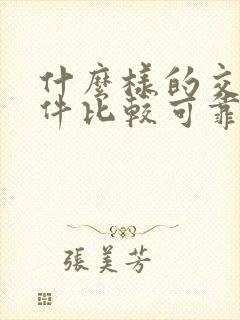 什麼樣的交
件比較可靠
張美芳